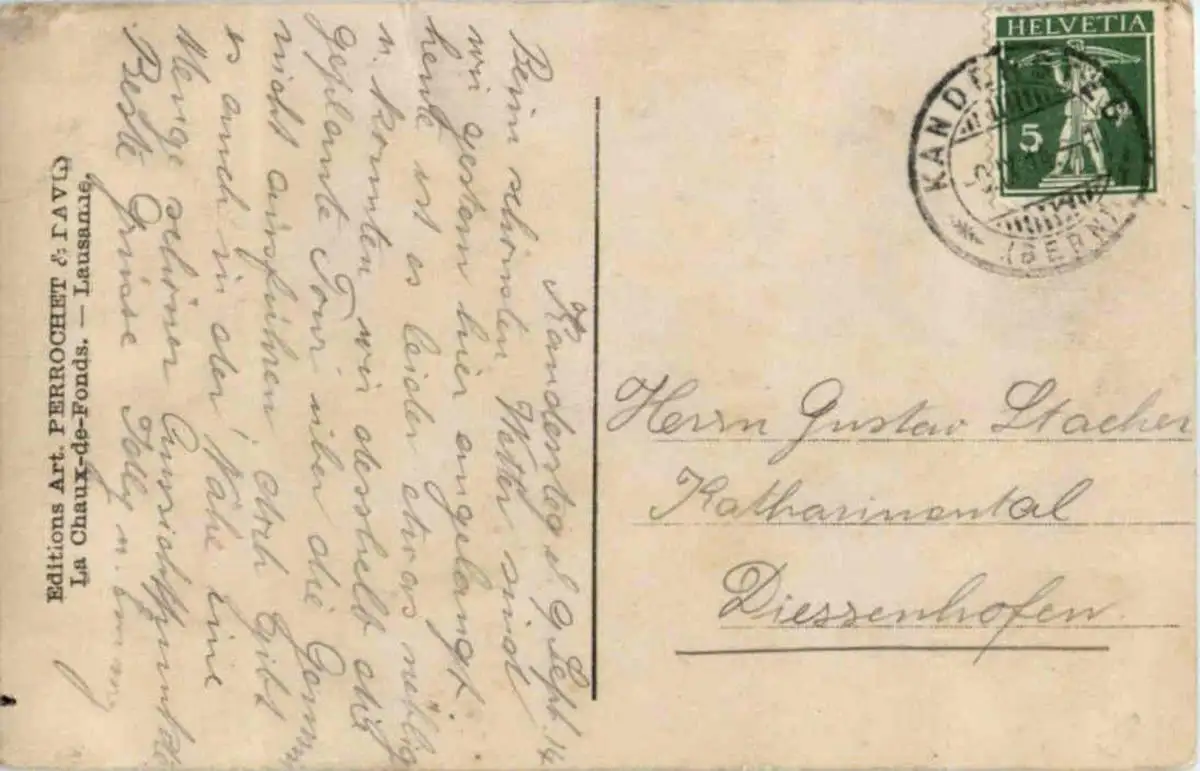 Kandersteg d. 9 Sept. 14
Beim schönsten Wetter sind
wir gestern hier angelangt.
heute ist es leider etwas neblig
u. konnten wir desshalb die
geplante Tour über die Gemmi
nicht ausführen, doch gibt
es auch in der Nähe eine
Menge schöner Aussichtspunkte
Beste Grüsse
Editions Art. PERROCHET &
La Chaux-de-Fonds. — Lausanne
HELVETIA
5
KANDERSTEG
(BERN)
Herrn Gustav Stacher
Katharinental
Diessenhofen